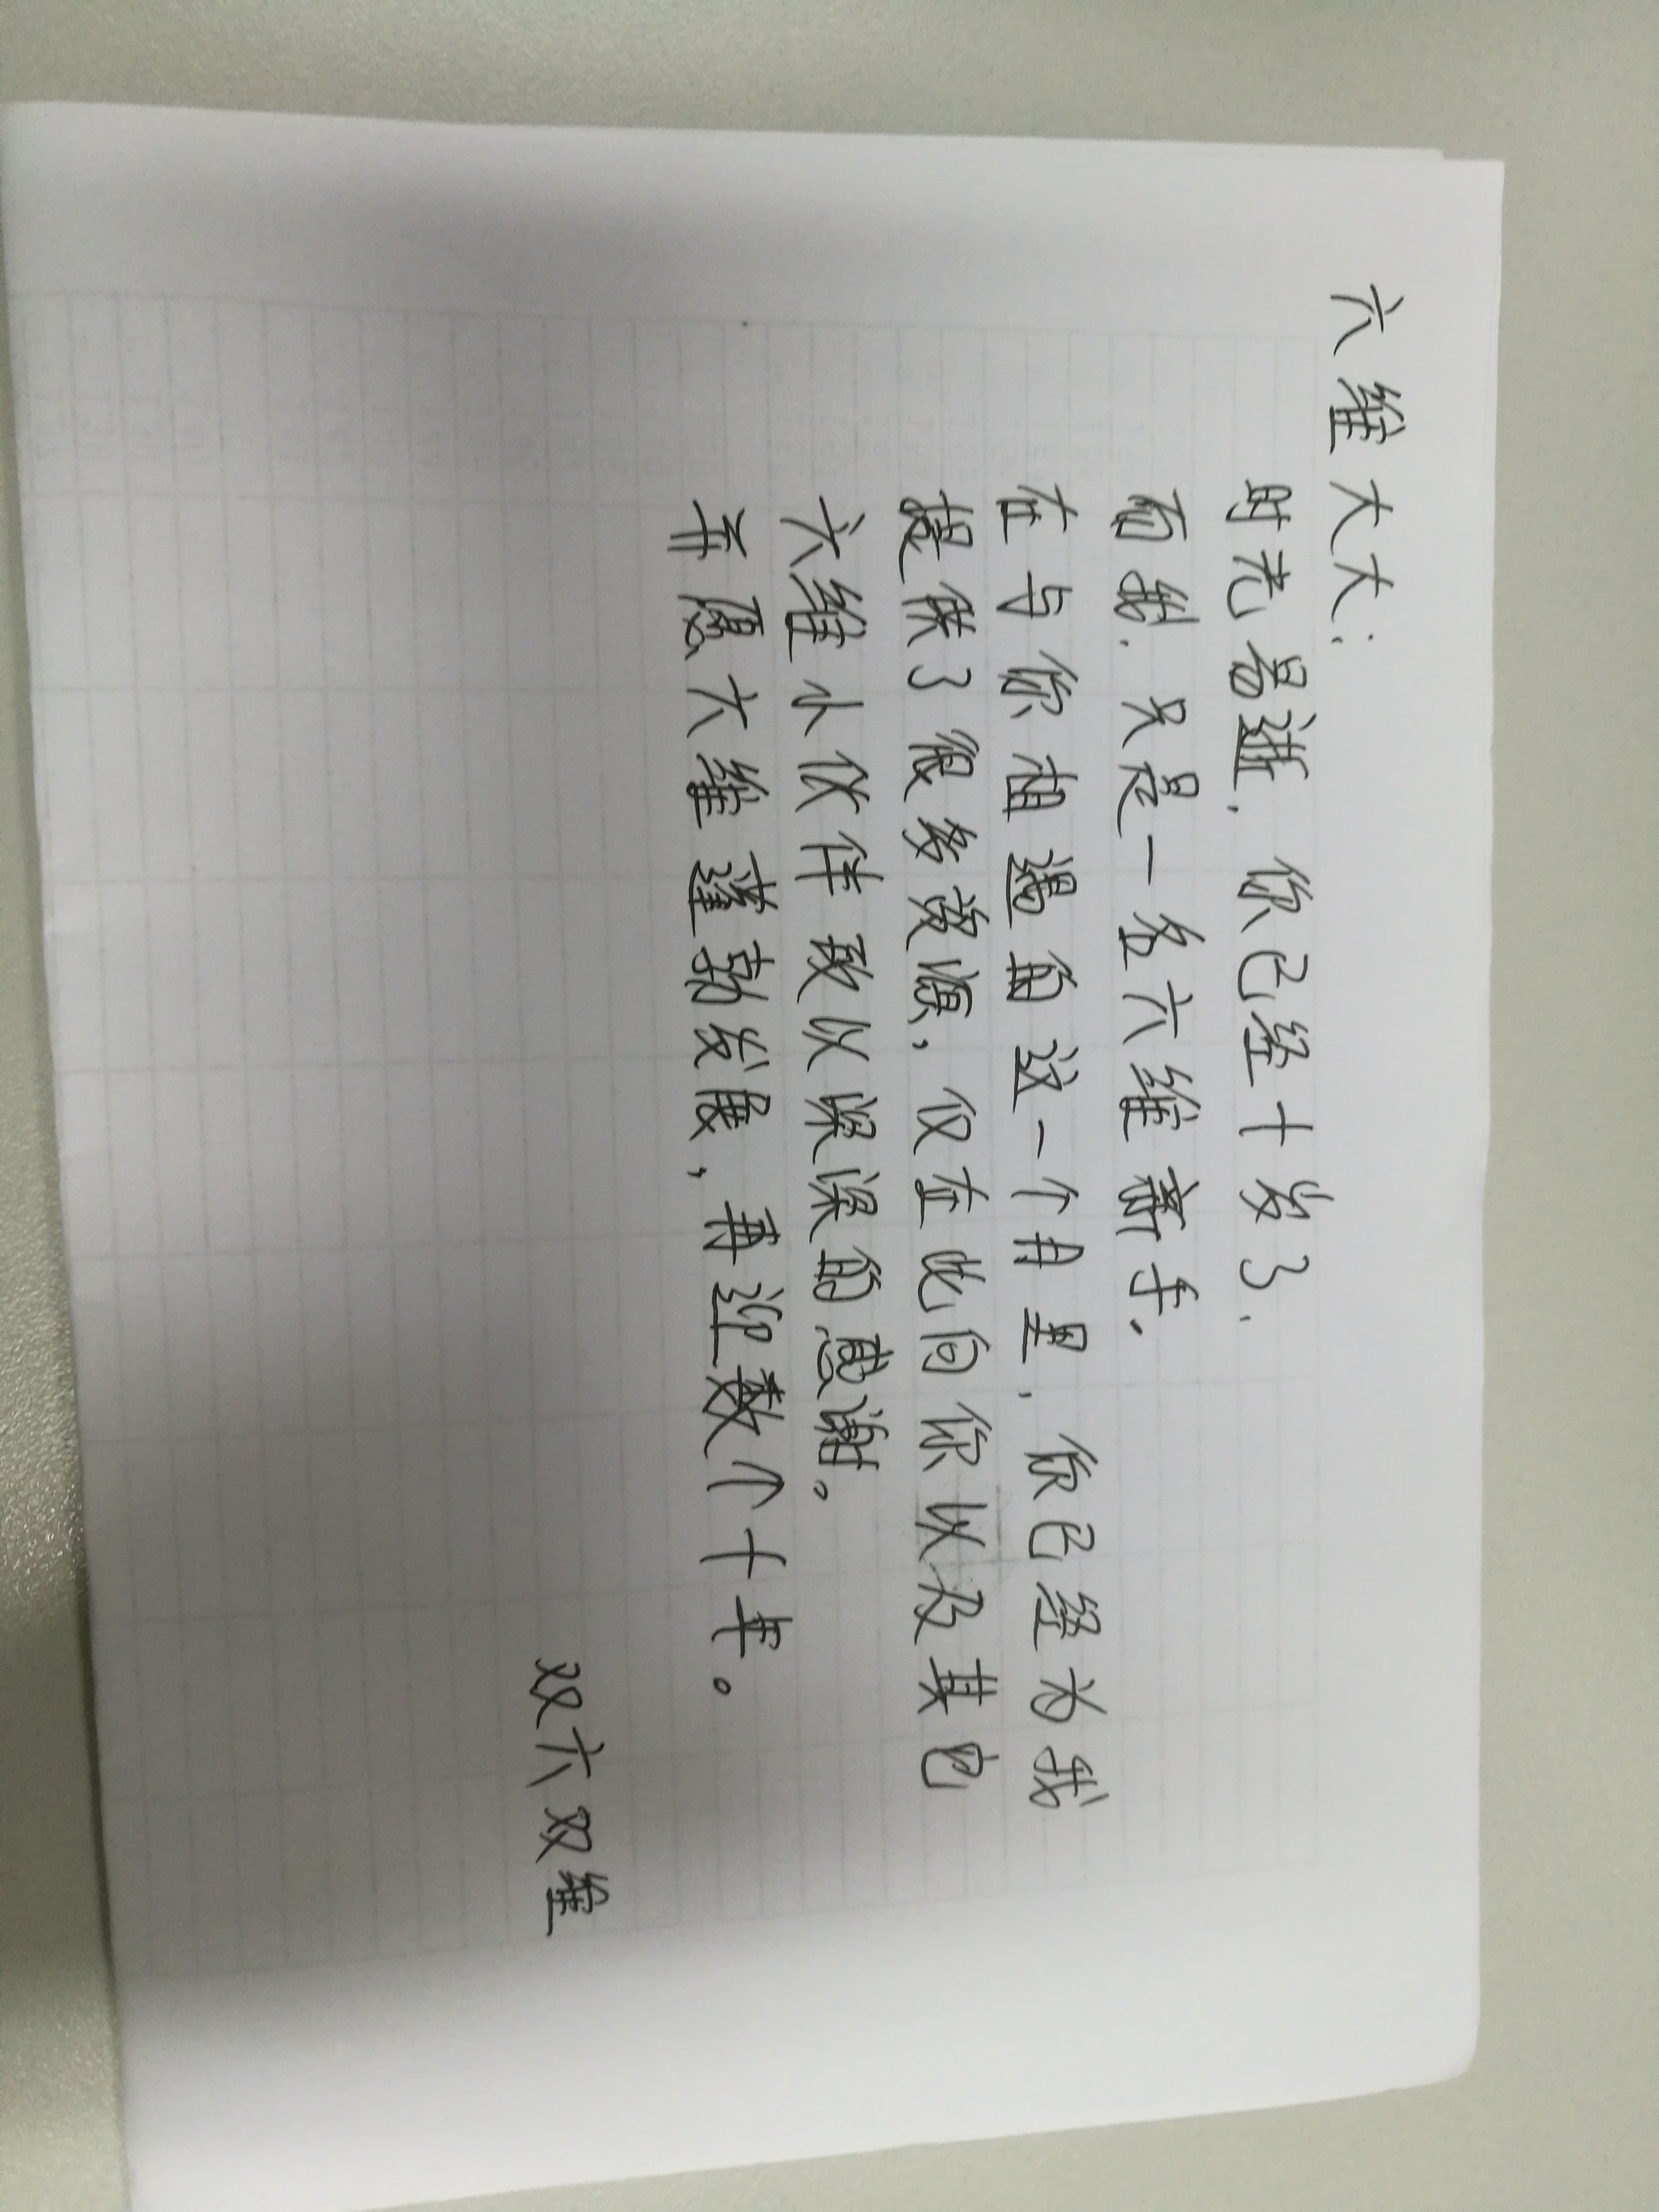 六维大大：
时光易逝，你已经十岁了，
而我，只是一名六维新手。
在与你相遇的这一个月里，你已经为我
提供了很多资源，仅在此向你以及其它
六维小伙伴致以深深的感谢。
并愿六维蓬勃发展，再迎数个十年。
双六双维